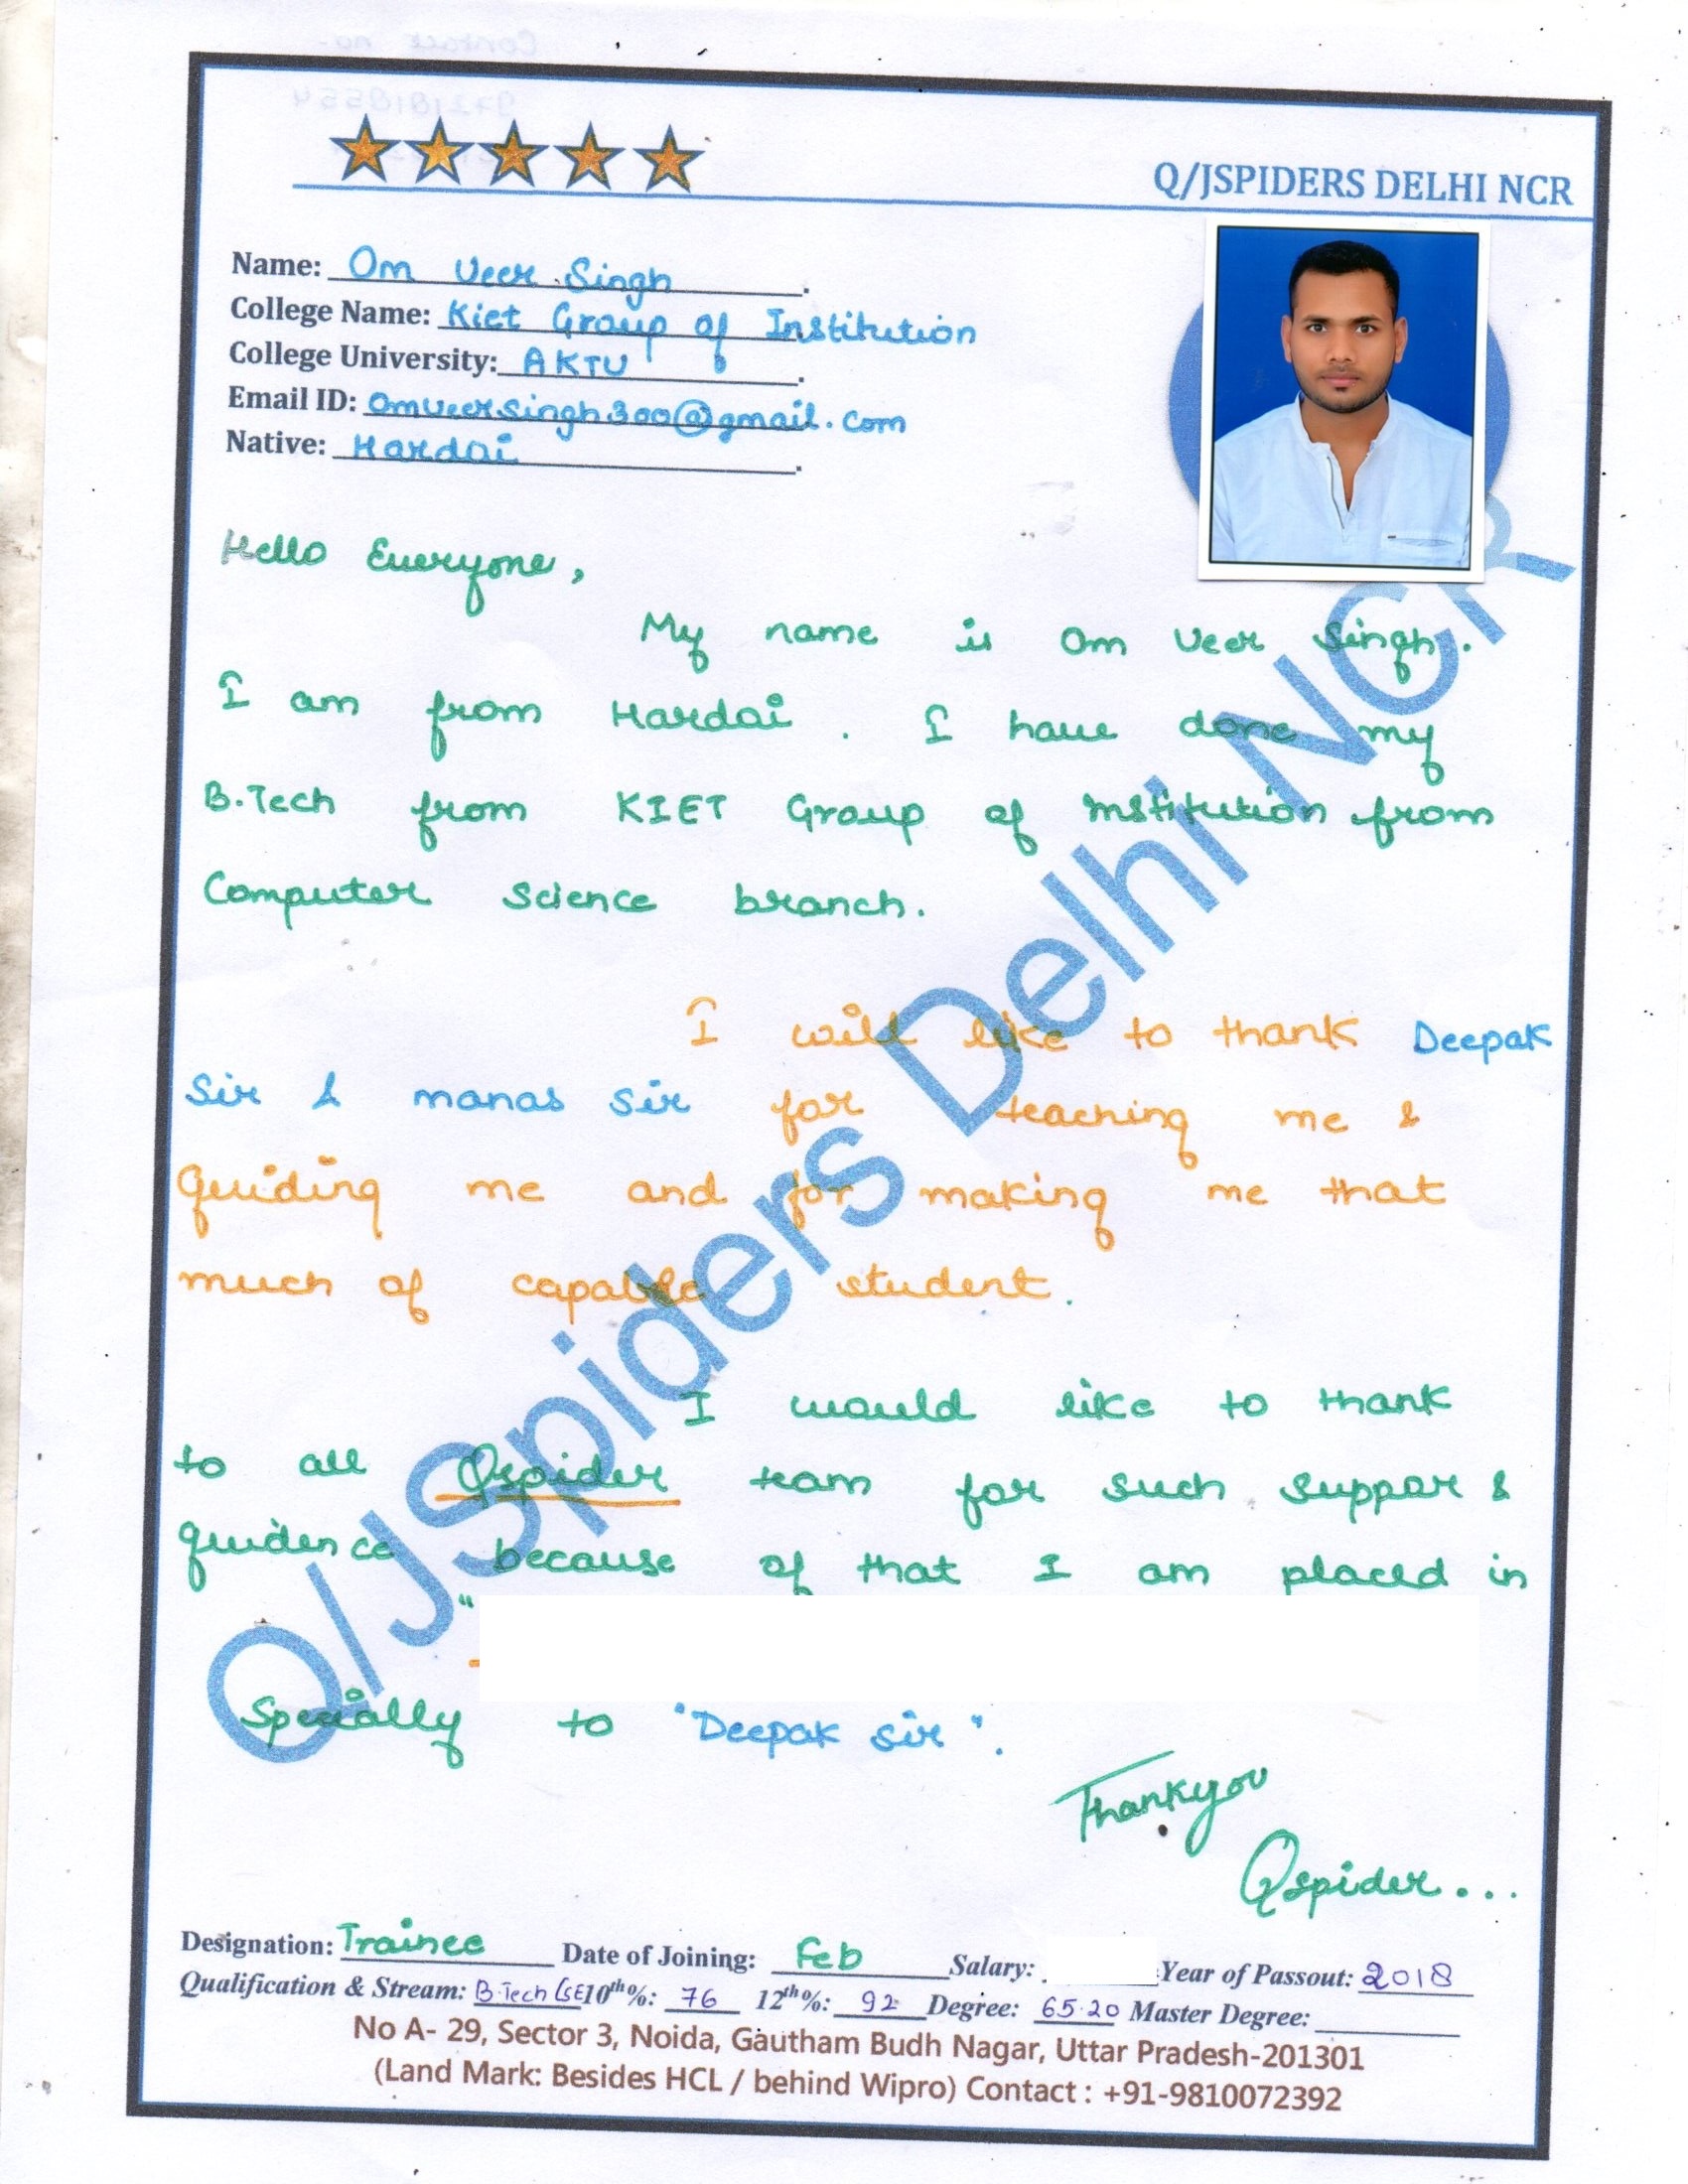 Q/JSPIDERS DELHI NCR
Name: Om Veer Singh
College Name: Kiet Group of Institution
College University: AKTU
Email ID: omveersingh300@gmail.com
Native: Hardoi
Hello Everyone,
My name is Om Veer Singh.
I am from Hardoi . I have done my
B.Tech from KIET Group of Institution from
Computer Science branch.
I will like to thank Deepak
Sir & manas Sir for teaching me &
guiding me and for making me that
much of capable student.
I would like to thank
to all Qspider team for such suppor &
guidence because of that I am placed in
"
Specially to "Deepak sir".
Thankyou
Qspider...
Designation: Trainee Date of Joining: Feb Salary: Year of Passout: 2018
Qualification & Stream: B.Tech CSE 10th%: 76 12th%: 92 Degree: 65.20 Master Degree:
No A- 29, Sector 3, Noida, Gautham Budh Nagar, Uttar Pradesh-201301
(Land Mark: Besides HCL / behind Wipro) Contact : +91-9810072392
Q/JSpiders Delhi NCR